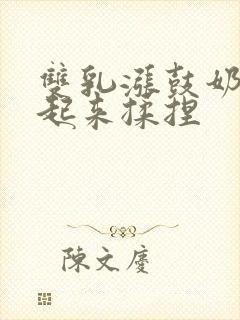 雙乳漲鼓奶
起来揉捏
陳文慶